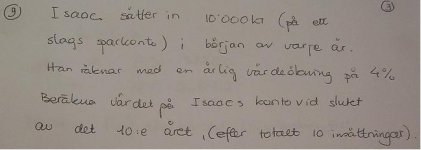 9 Isaac sätter in 10'000kr (på ett
slags sparkonto) i början av varje år.
Han räknar med en årlig värdeökning på 4%
Beräkna värdet på Isaacs konto vid slutet
av det 10:e året, (efter totalt 10 insättningar).
3